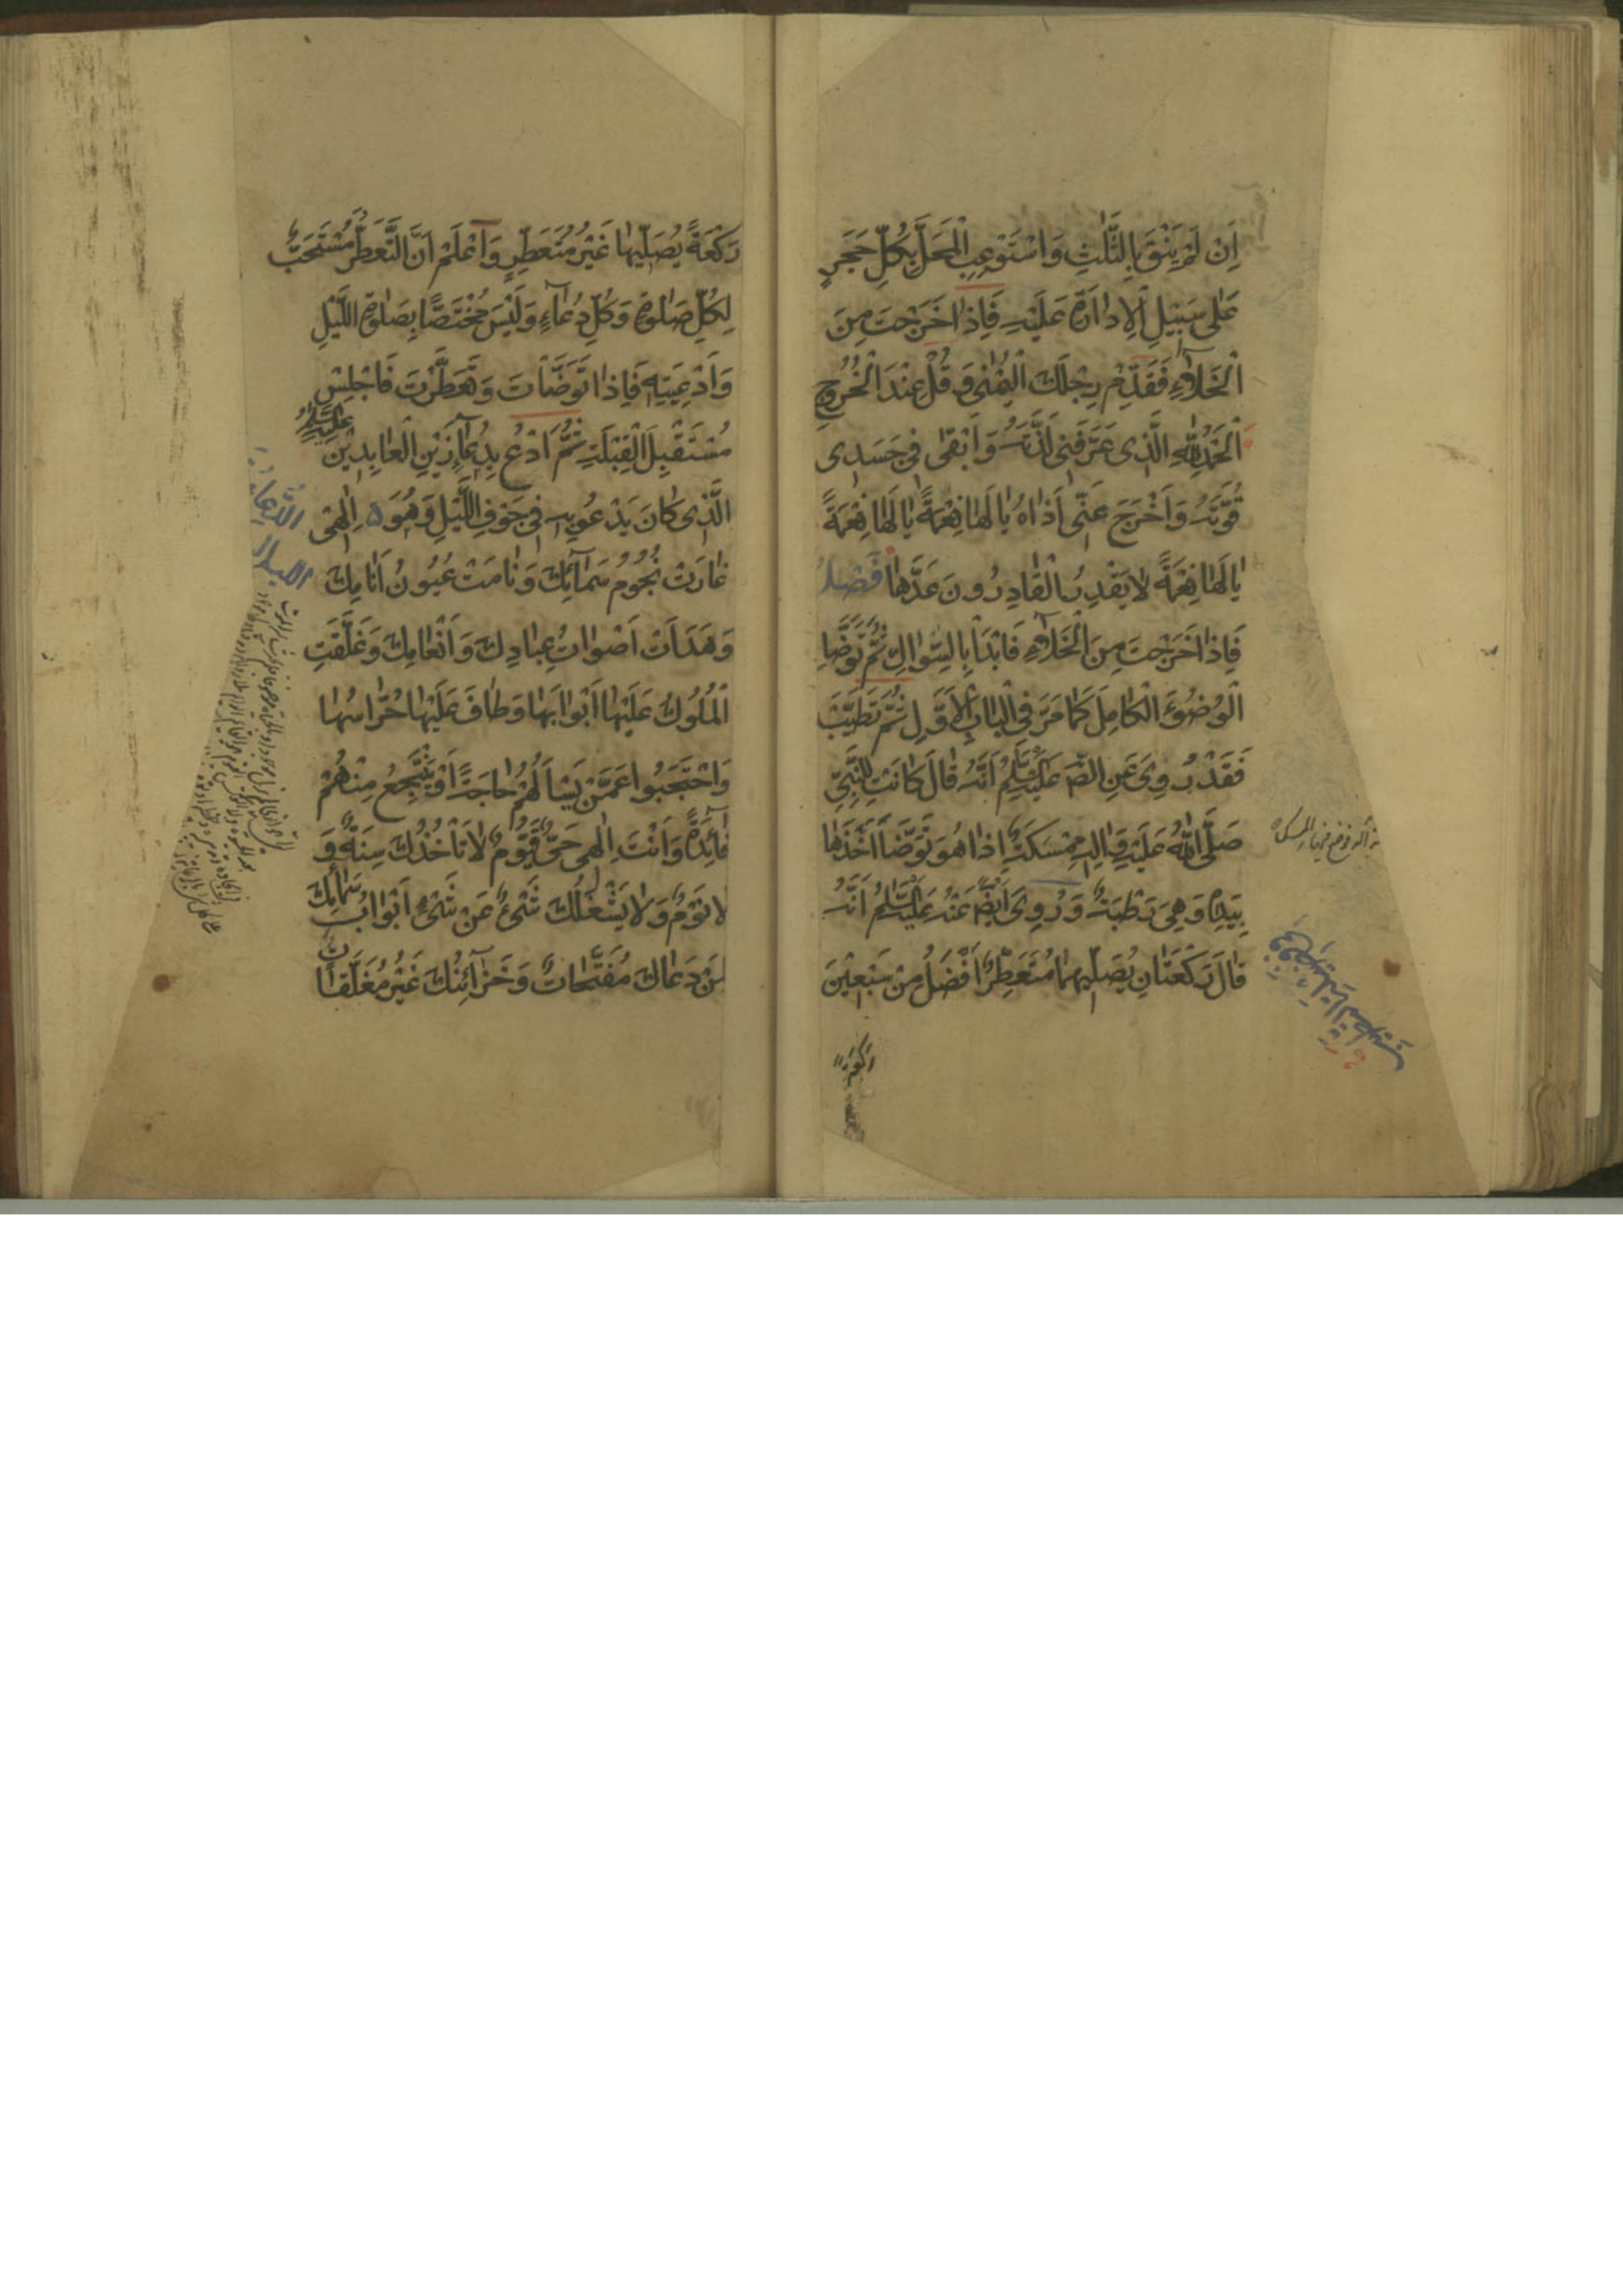 اِنْ لَمْ يَنْقَ بِالثَّلٰثِ وَاسْتَوْعِبِ الْمَحَلَّ بِكُلِّ حَجَرٍ
عَلٰى سَبِيْلِ الْاِدٰارَةِ عَلَيْهِ فَاِذٰا خَرَجْتَ مِنَ
الْخَلٰآءِ فَقَدِّمْ رِجْلَكَ الْيُمْنٰى وَقُلْ عِنْدَ الْخُرُوجِ
اَلْحَمْدُ لِلّٰهِ الَّذِى عَرَّفَنِى لَذَّتَهُ وَاَبْقٰى فِى جَسَدِى
قُوَّتَهُ وَاَخْرَجَ عَنِّى اَذٰاهُ يٰا لَهٰا نِعْمَةً يٰا لَهٰا نِعْمَةً
يٰا لَهٰا نِعْمَةً لٰا يَقْدِرُ الْقٰادِرُونَ قَدْرَهٰا فَصْلٌ
فَاِذٰا خَرَجْتَ مِنَ الْخَلٰآءِ فَابْدَأْ بِالسِّوٰاكِ ثُمَّ تَوَضَّأْ
الْوُضُوۤءَ الْكٰامِلَ كَمٰا مَرَّ فِى الْبٰابِ الْاَوَّلِ ثُمَّ تَطَيَّبْ
فَقَدْ رُوِىَ عَنِ الصّٰ عَلَيْهِ السَّلٰمُ اَنَّهُ قٰالَ كٰانَتْ لِلنَّبِىِّ
صَلَّى اللّٰهُ عَلَيْهِ وَاٰلِهِ مِمْسَكَةٌ اِذٰا هُوَ تَوَضَّأَ اَخَذَهٰا
بِيَدِهِ وَهِىَ رَطْبَةٌ وَرُوِىَ اَيْضًا عَنْهُ عَلَيْهِ السَّلٰمُ اَنَّهُ
قٰالَ رَكْعَتٰانِ يُصَلِّيهِمٰا مُتَعَطِّرٌ اَفْضَلُ مِنْ سَبْعِيْنَ
رَكْعَةً
رَكْعَةً يُصَلِّيهٰا غَيْرُ مُتَعَطِّرٍ وَاعْلَمْ اَنَّ التَّعَطُّرَ مُسْتَحَبٌّ
لِكُلِّ صَلٰوةٍ وَكُلِّ دُعٰآءٍ وَلَيْسَ مُخْتَصًّا بِصَلٰوةِ اللَّيْلِ
وَاَدْعِيَتِهِ فَاِذٰا تَوَضَّأْتَ وَتَعَطَّرْتَ فَاجْلِسْ
مُسْتَقْبِلَ الْقِبْلَةِ ثُمَّ ادْعُ بِدُعٰآءِ زَيْنِ الْعٰابِدِيْنَ عَلَيْهِ السَّلٰمُ
الَّذِى كٰانَ يَدْعُو بِهِ فِى جَوْفِ اللَّيْلِ وَهُوَ ه اِلٰهِى
غٰارَتْ نُجُومُ سَمٰآئِكَ وَنٰامَتْ عُيُونُ اَنٰامِكَ
وَهَدَأَتْ اَصْوٰاتُ عِبٰادِكَ وَاَنْعٰامِكَ وَغَلَّقَتِ
الْمُلُوكُ عَلَيْهٰا اَبْوٰابَهٰا وَطٰافَ عَلَيْهٰا حُرّٰاسُهٰا
وَاحْتَجَبُوا عَمَّنْ يَسْأَلُهُمْ حٰاجَةً اَوْ يَنْتَجِعُ مِنْهُمْ
فٰآئِدَةً وَاَنْتَ اِلٰهِى حَىٌّ قَيُّومٌ لٰا تَأْخُذُكَ سِنَةٌ وَ
لٰا نَوْمٌ وَلٰا يَشْغَلُكَ شَىْءٌ عَنْ شَىْءٍ اَبْوٰابُ سَمٰآئِكَ
لِمَنْ دَعٰاكَ مُفَتَّحٰاتٌ وَخَزٰآئِنُكَ غَيْرُ مُغَلَّقٰاتٍ